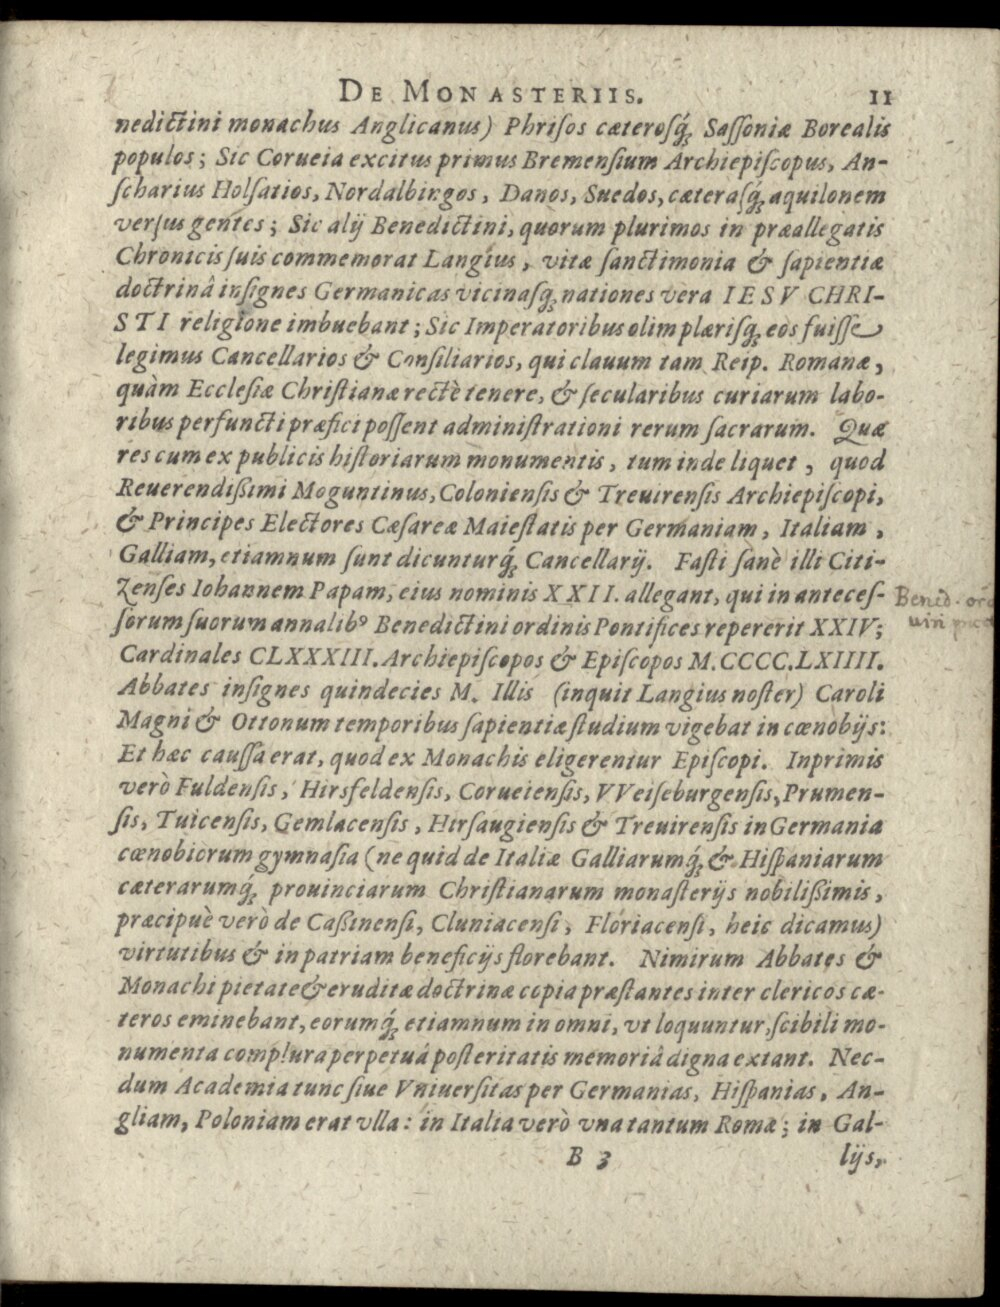 DE MONASTERIIS. 11
nedictini monachus Anglicanus) Phrisos cæterosq́; Sassoniæ Borealis
populos; Sic Corueia excitus primus Bremensium Archiepiscopus, An-
scharius Holsatios, Nordalbingos, Danos, Suedos, cæterasq́; aquilonem
versus gentes; Sic alij Benedictini, quorum plurimos in præallegatis
Chronicis suis commemorat Langius, vitæ sanctimonia & sapientiæ
doctrinâ insignes Germanicas vicinasq́; nationes vera IESV CHRI-
STI religione imbuebant; Sic Imperatoribus olim plærisq́; eos fuisse
legimus Cancellarios & Consiliarios, qui clauum tam Reip. Romanæ,
quàm Ecclesiæ Christianæ rectè tenere, & secularibus curiarum labo-
ribus perfuncti præfici possent administrationi rerum sacrarum. Quæ
res cum ex publicis historiarum monumentis, tum inde liquet, quod
Reuerendißimi Moguntinus, Coloniensis & Treuirensis Archiepiscopi,
& Principes Electores Cæsareæ Maiestatis per Germaniam, Italiam,
Galliam, etiamnum sunt dicunturq́; Cancellarij. Fasti sanè illi Citi-
zenses Iohannem Papam, eius nominis XXII. allegant, qui in anteces-
sorum suorum annalibꝰ Benedictini ordinis Pontifices repererit XXIV;
Cardinales CLXXXIII. Archiepiscopos & Episcopos M.CCCC.LXIIII.
Abbates insignes quindecies M. Illis (inquit Langius noster) Caroli
Magni & Ottonum temporibus sapientiæ studium vigebat in cœnobijs:
Et hæc caussa erat, quod ex Monachis eligerentur Episcopi. Inprimis
verò Fuldensis, Hirsfeldensis, Corueiensis, VVeiseburgensis, Prumen-
sis, Tuicensis, Gemlacensis, Hirsaugiensis & Treuirensis in Germania
cœnobiorum gymnasia (ne quid de Italiæ Galliarumq́; & Hispaniarum
cæterarumq́; prouinciarum Christianarum monasterijs nobilißimis,
præcipuè verò de Caßinensi, Cluniacensi, Floriacensi, heic dicamus)
virtutibus & in patriam beneficijs florebant. Nimirum Abbates &
Monachi pietate & eruditæ doctrinæ copia præstantes inter clericos cæ-
teros eminebant, eorumq́; etiamnum in omni, vt loquuntur, scibili mo-
numenta complura perpetuâ posteritatis memoriâ digna extant. Nec-
dum Academia tunc siue Vniuersitas per Germanias, Hispanias, An-
gliam, Poloniam erat vlla: in Italia verò vna tantum Romæ; in Gal-
B 3 lijs,
Bened. ord